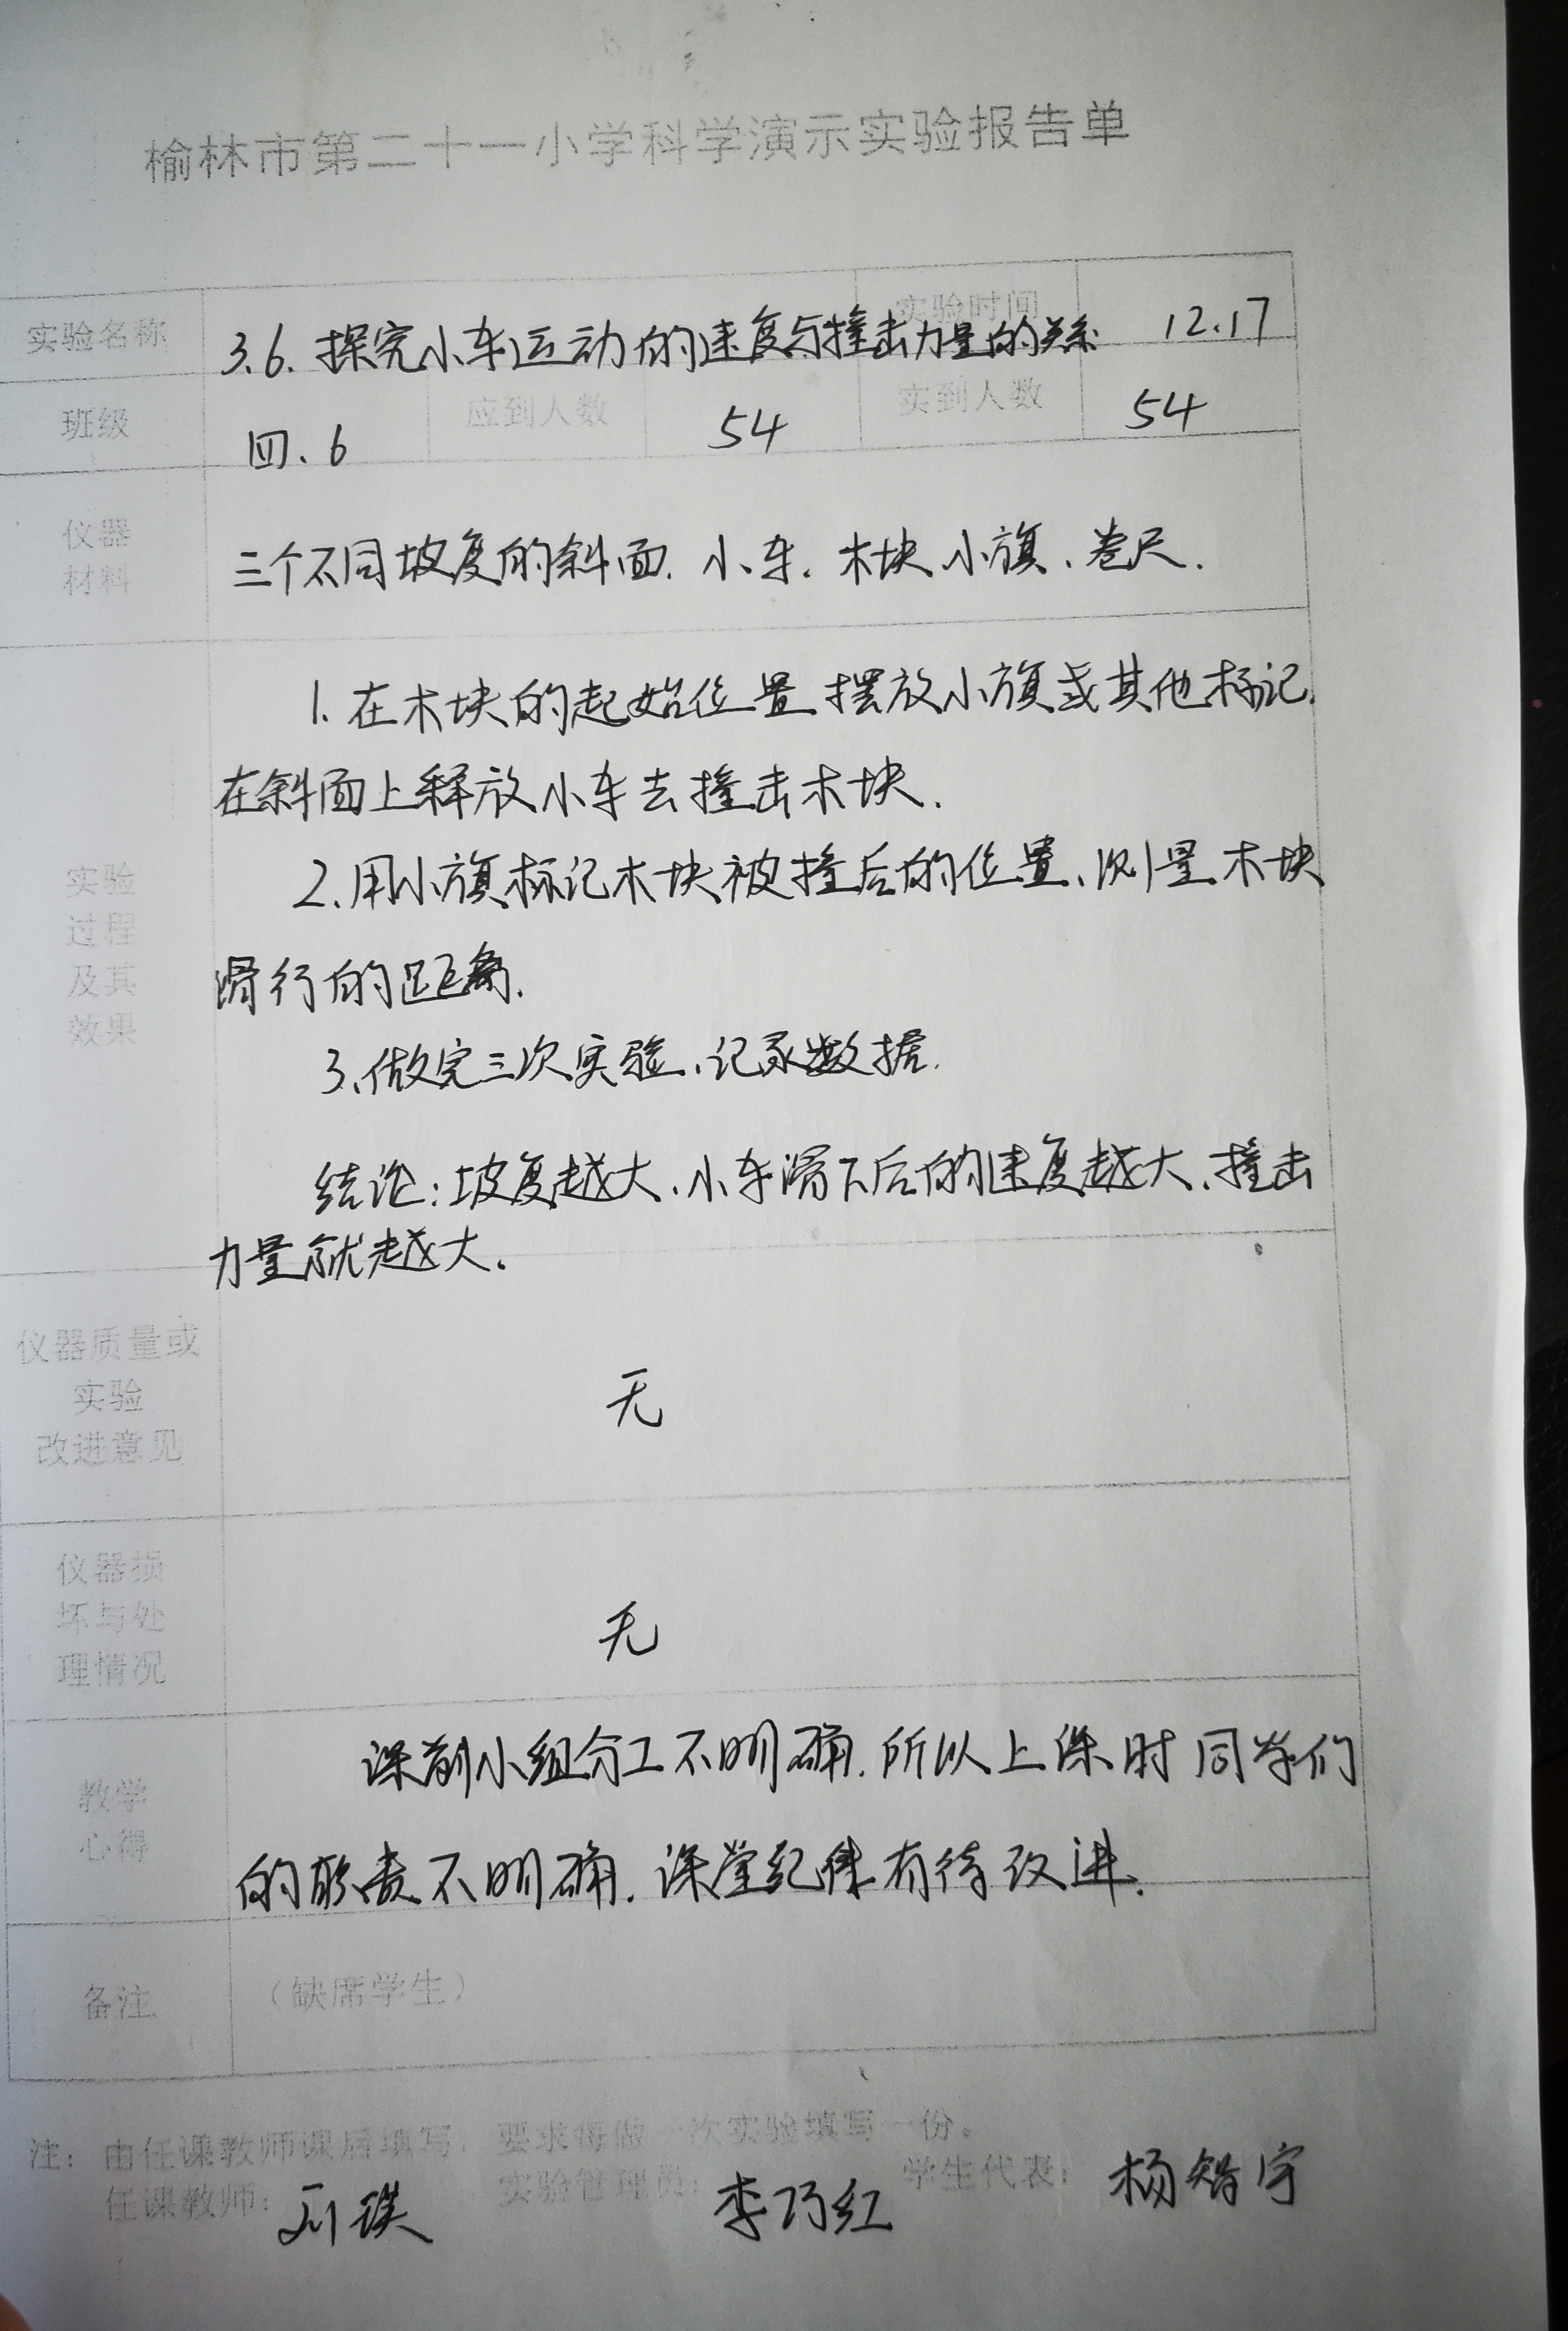 榆林市第二十一小学科学演示实验报告单
实验名称 3.6. 探究小车运动的速度与撞击力量的关系 实验时间 12.17
班级 四.6 应到人数 54 实到人数 54
仪器
材料
三个不同坡度的斜面. 小车. 木块 小旗、卷尺.
1. 在木块的起始位置摆放小旗或其他标记.
在斜面上释放小车去撞击木块.
实验
过程
及其
效果
2.用小旗标记木块被撞后的位置、测量木块
滑行的距离.
3.做完三次实验、记录数据.
结论:坡度越大、小车滑下后的速度越大、撞击
力量就越大.
仪器质量或
实验
改进意见
无
仪器损
坏与处
理情况
无
教学
心得
课前小组分工不明确.所以上课时同学们
的职责不明确.课堂纪律有待改进.
备注 (缺席学生)
注: 由任课教师课后填写,要求每做一次实验填写一份。
任课教师: 实验管理员: 李巧红 学生代表: